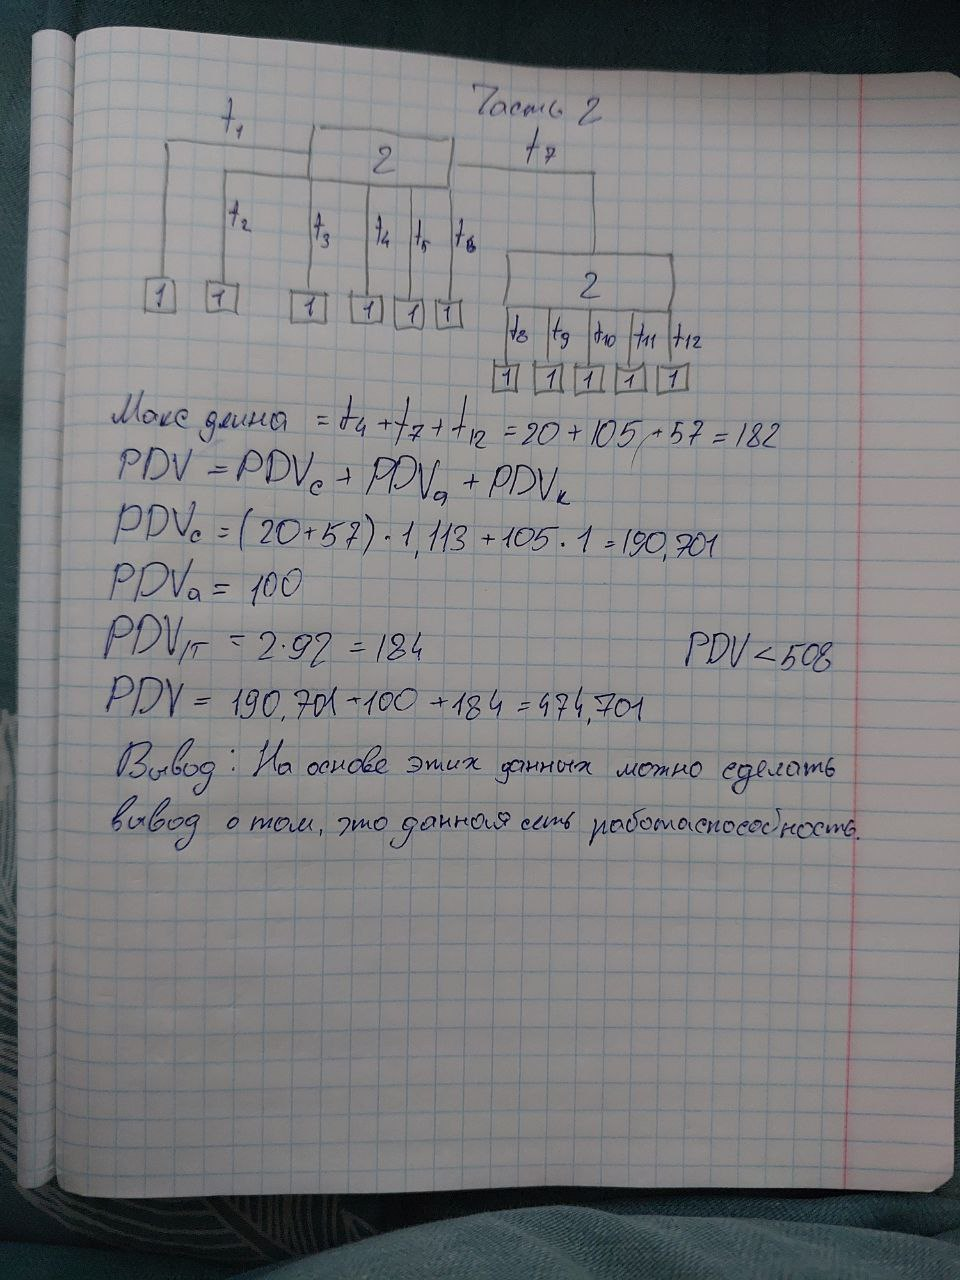 Часть 2
t1 2 t7
t2 t3 t4 t5 t6
1 1 1 1 1 1
2
t8 t9 t10 t11 t12
1 1 1 1 1
Макс длина = t4 + t7 + t12 = 20 + 105 + 57 = 182
PDV = PDVc + PDVa + PDVк
PDVc = (20+57) · 1,113 + 105 · 1 = 190,701
PDVa = 100
PDVIT = 2·92 = 184 PDV < 508
PDV = 190,701 + 100 + 184 = 474,701
Вывод: На основе этих данных можно сделать
вывод о том, это данная сеть работаспособность.